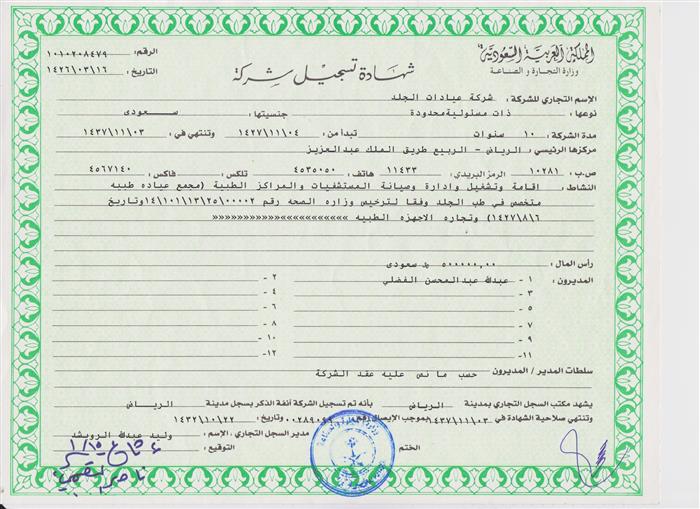 المملكة العربية السعودية
وزارة التجارة و الصناعة
شهادة تسجيل شركة
الرقم: ١٠١٠٢٠٨٤٧٩
التاريخ: ١٤٢٦/٠٣/١٦
الإسم التجاري للشركة: شركة عيادات الجلد
نوعها: ذات مسئولية محدودة جنسيتها: سعودى
مدة الشركة: ١٠ سنوات تبدأ من: ١٤٢٧\١١\٠٤ وتنتهي في: ١٤٣٧\١١\٠٣
مركزها الرئيسي: الرياض - الربيع طريق الملك عبدالعزيز
ص.ب: ١٠٢٨١ الرمز البريدي: ١١٤٣٣ هاتف: ٤٥٣٥٠٥٠ تلكس: فاكس: ٤٥٦٧١٤٠
النشاط: اقامة وتشغيل وادارة وصيانة المستشفيات والمراكز الطبية (مجمع عياده طبيه
متخصص في طب الجلد وفقا لترخيص وزاره الصحه رقم ١٤\١٠١\١٣\٢٥\٠٠٠٠٢ وتاريخ
١٤٢٧\٨\٦) وتجاره الاجهزه الطبيه »»»»»»»»»»»««««««««««
رأس المال: ٥٠٠٠٠٠,٠٠ ريال سعودى
المديرون: ١ - عبدالله عبدالمحسن الفضلي ٢ -
٣ - ٤ -
٥ - ٦ -
٧ - ٨ -
٩ - ١٠ -
١١- ١٢-
سلطات المدير / المديرون: حسب ما نص عليه عقد الشركة
يشهد مكتب السجل التجاري بمدينة الرياض بأنه تم تسجيل الشركة آنفة الذكر بسجل مدينة الرياض
وتنتهي صلاحية الشهادة في ١٤٣٧\١١\٠٣ بموجب الإيصال رقم وتاريخ: ١٤٣٢\١٠\٢٢
الختم مدير السجل التجاري، الإسم: وليد عبدالله الرويشد
التوقيع: